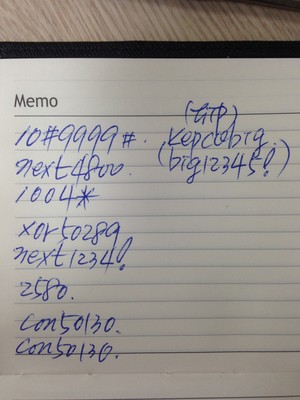 Memo
10#9999#.
next4800.
1004*
xor50289
next1234!
2580.
con50130.
con50130.
kepcobig
(big12345!)